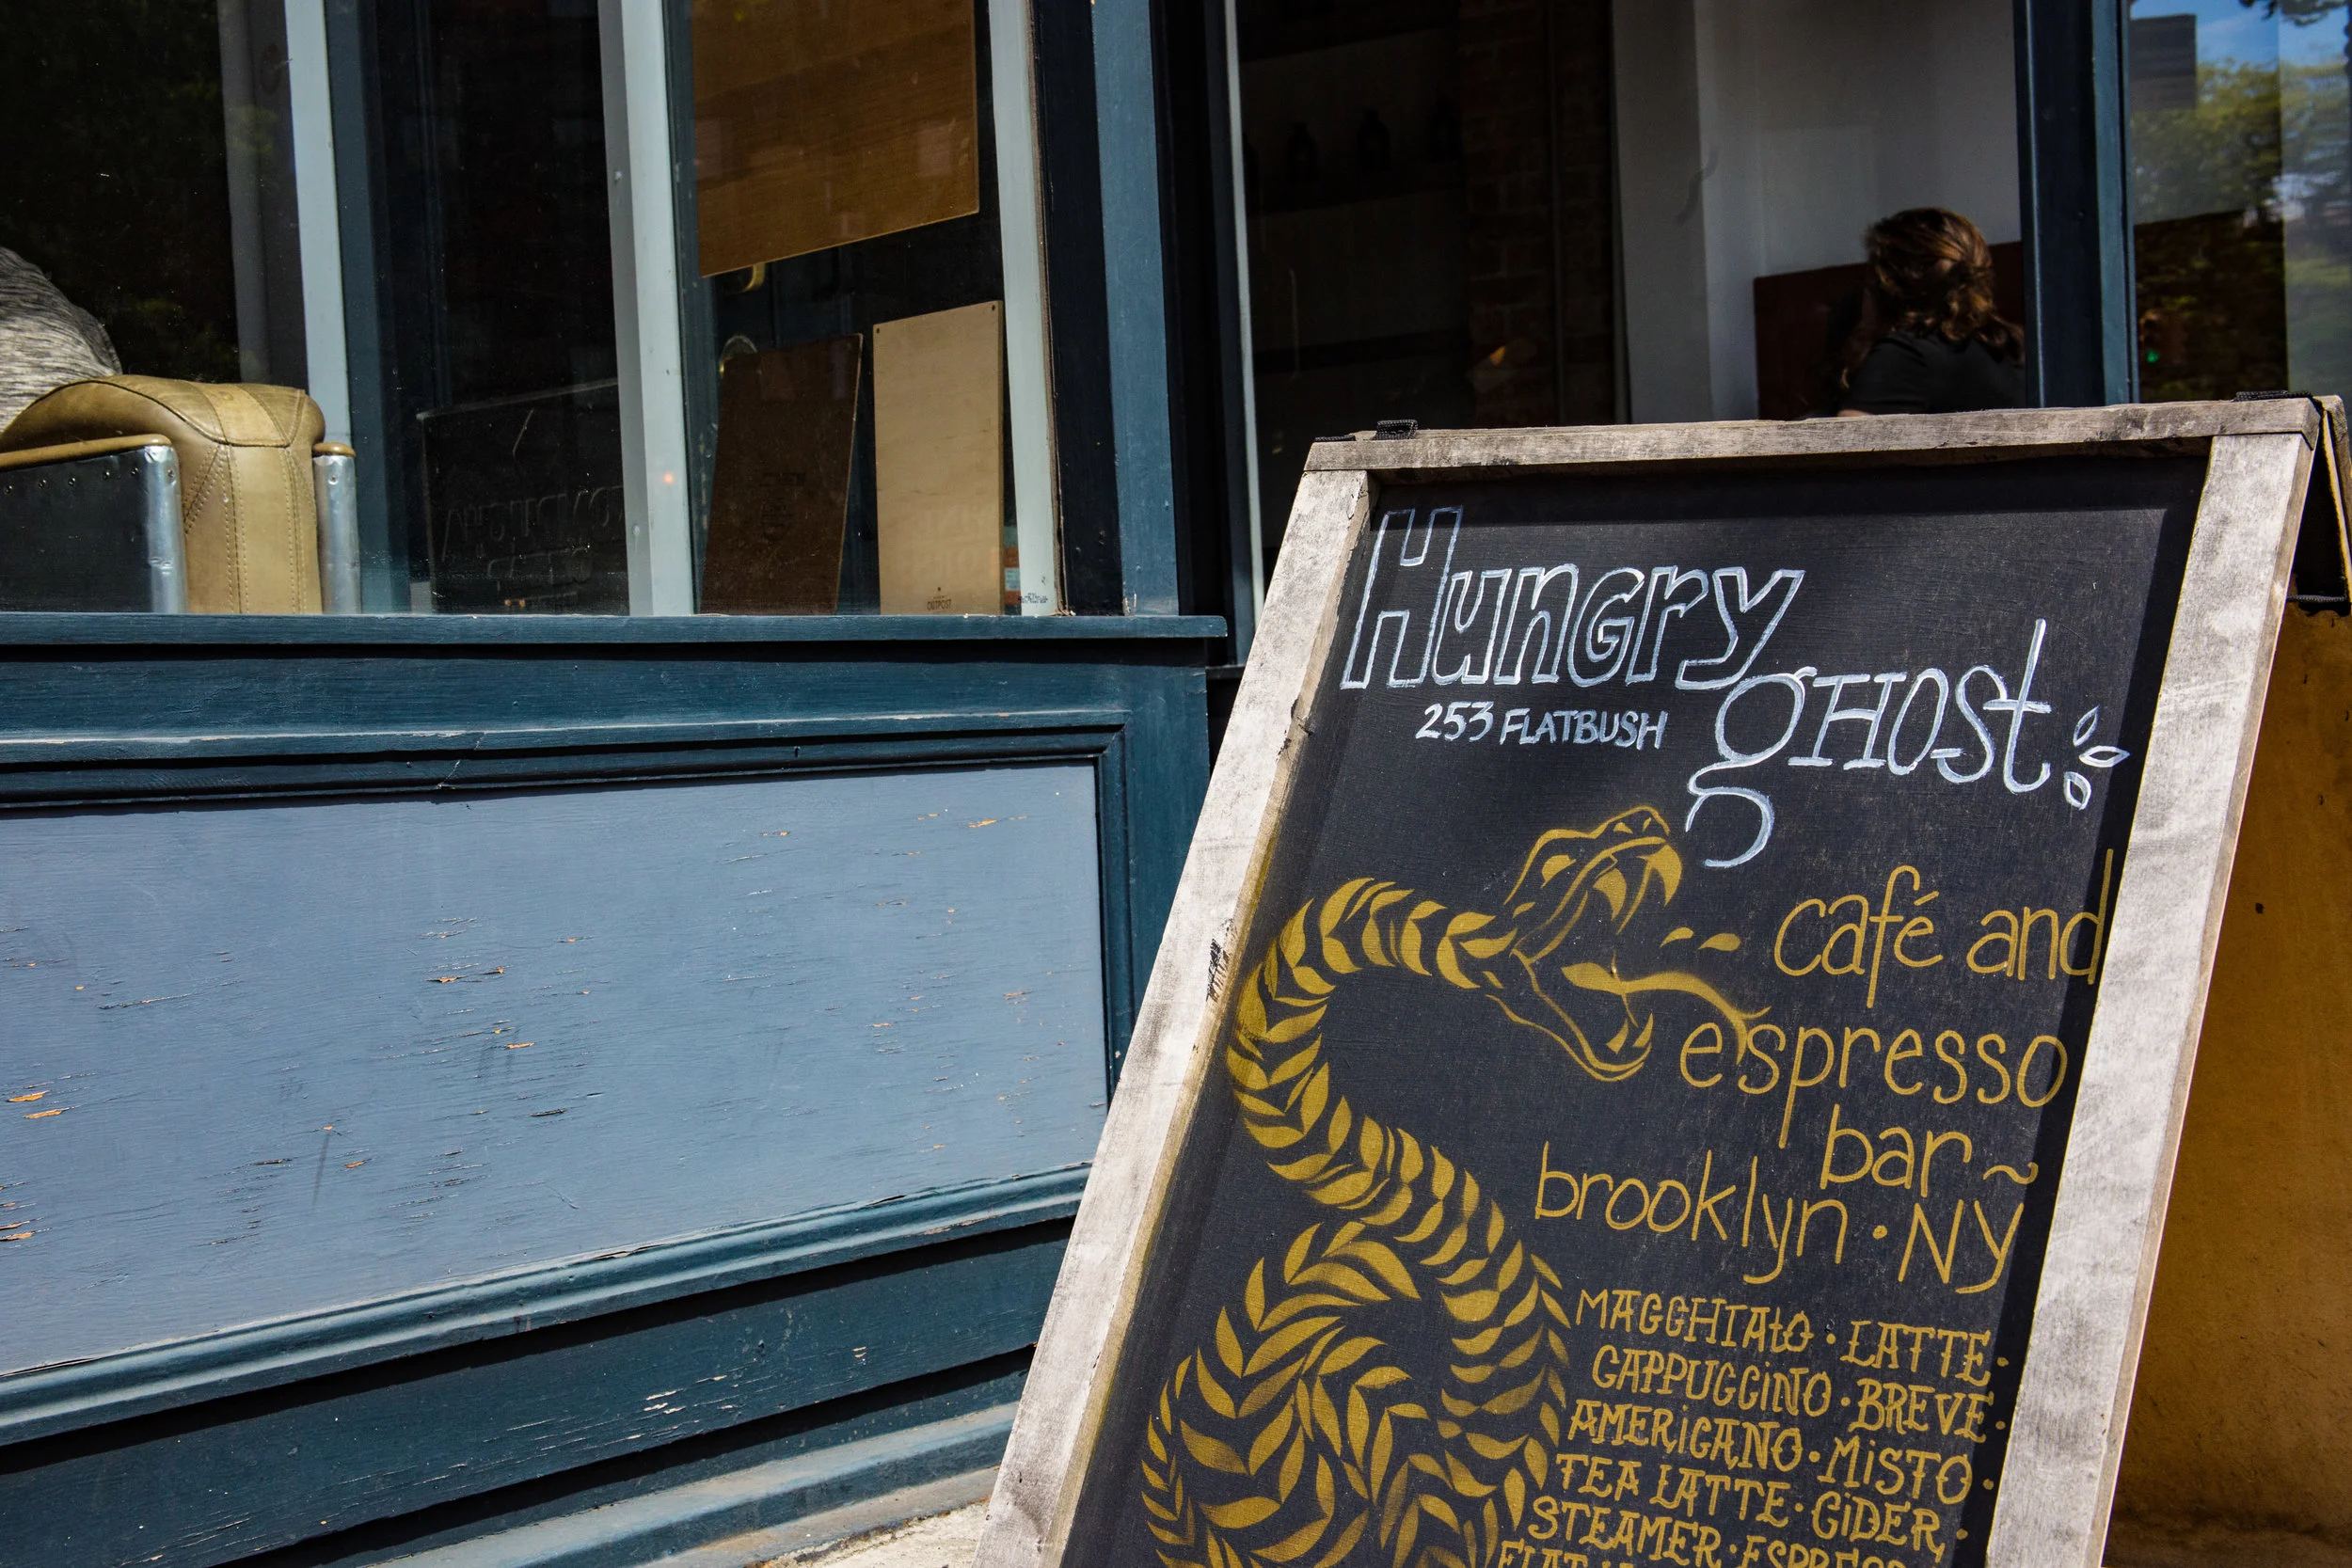 Hungry
gHOST
253 FLATBUSH
café and
espresso
bar ~
brooklyn · NY
MACCHIAtO · LATTE ·
CAPPUCCiNO · BREVE ·
AMERiCANO · MiSTO ·
TEA LATTE · CiDER ·
STEAMER · ESPRESSO
OUTPOST